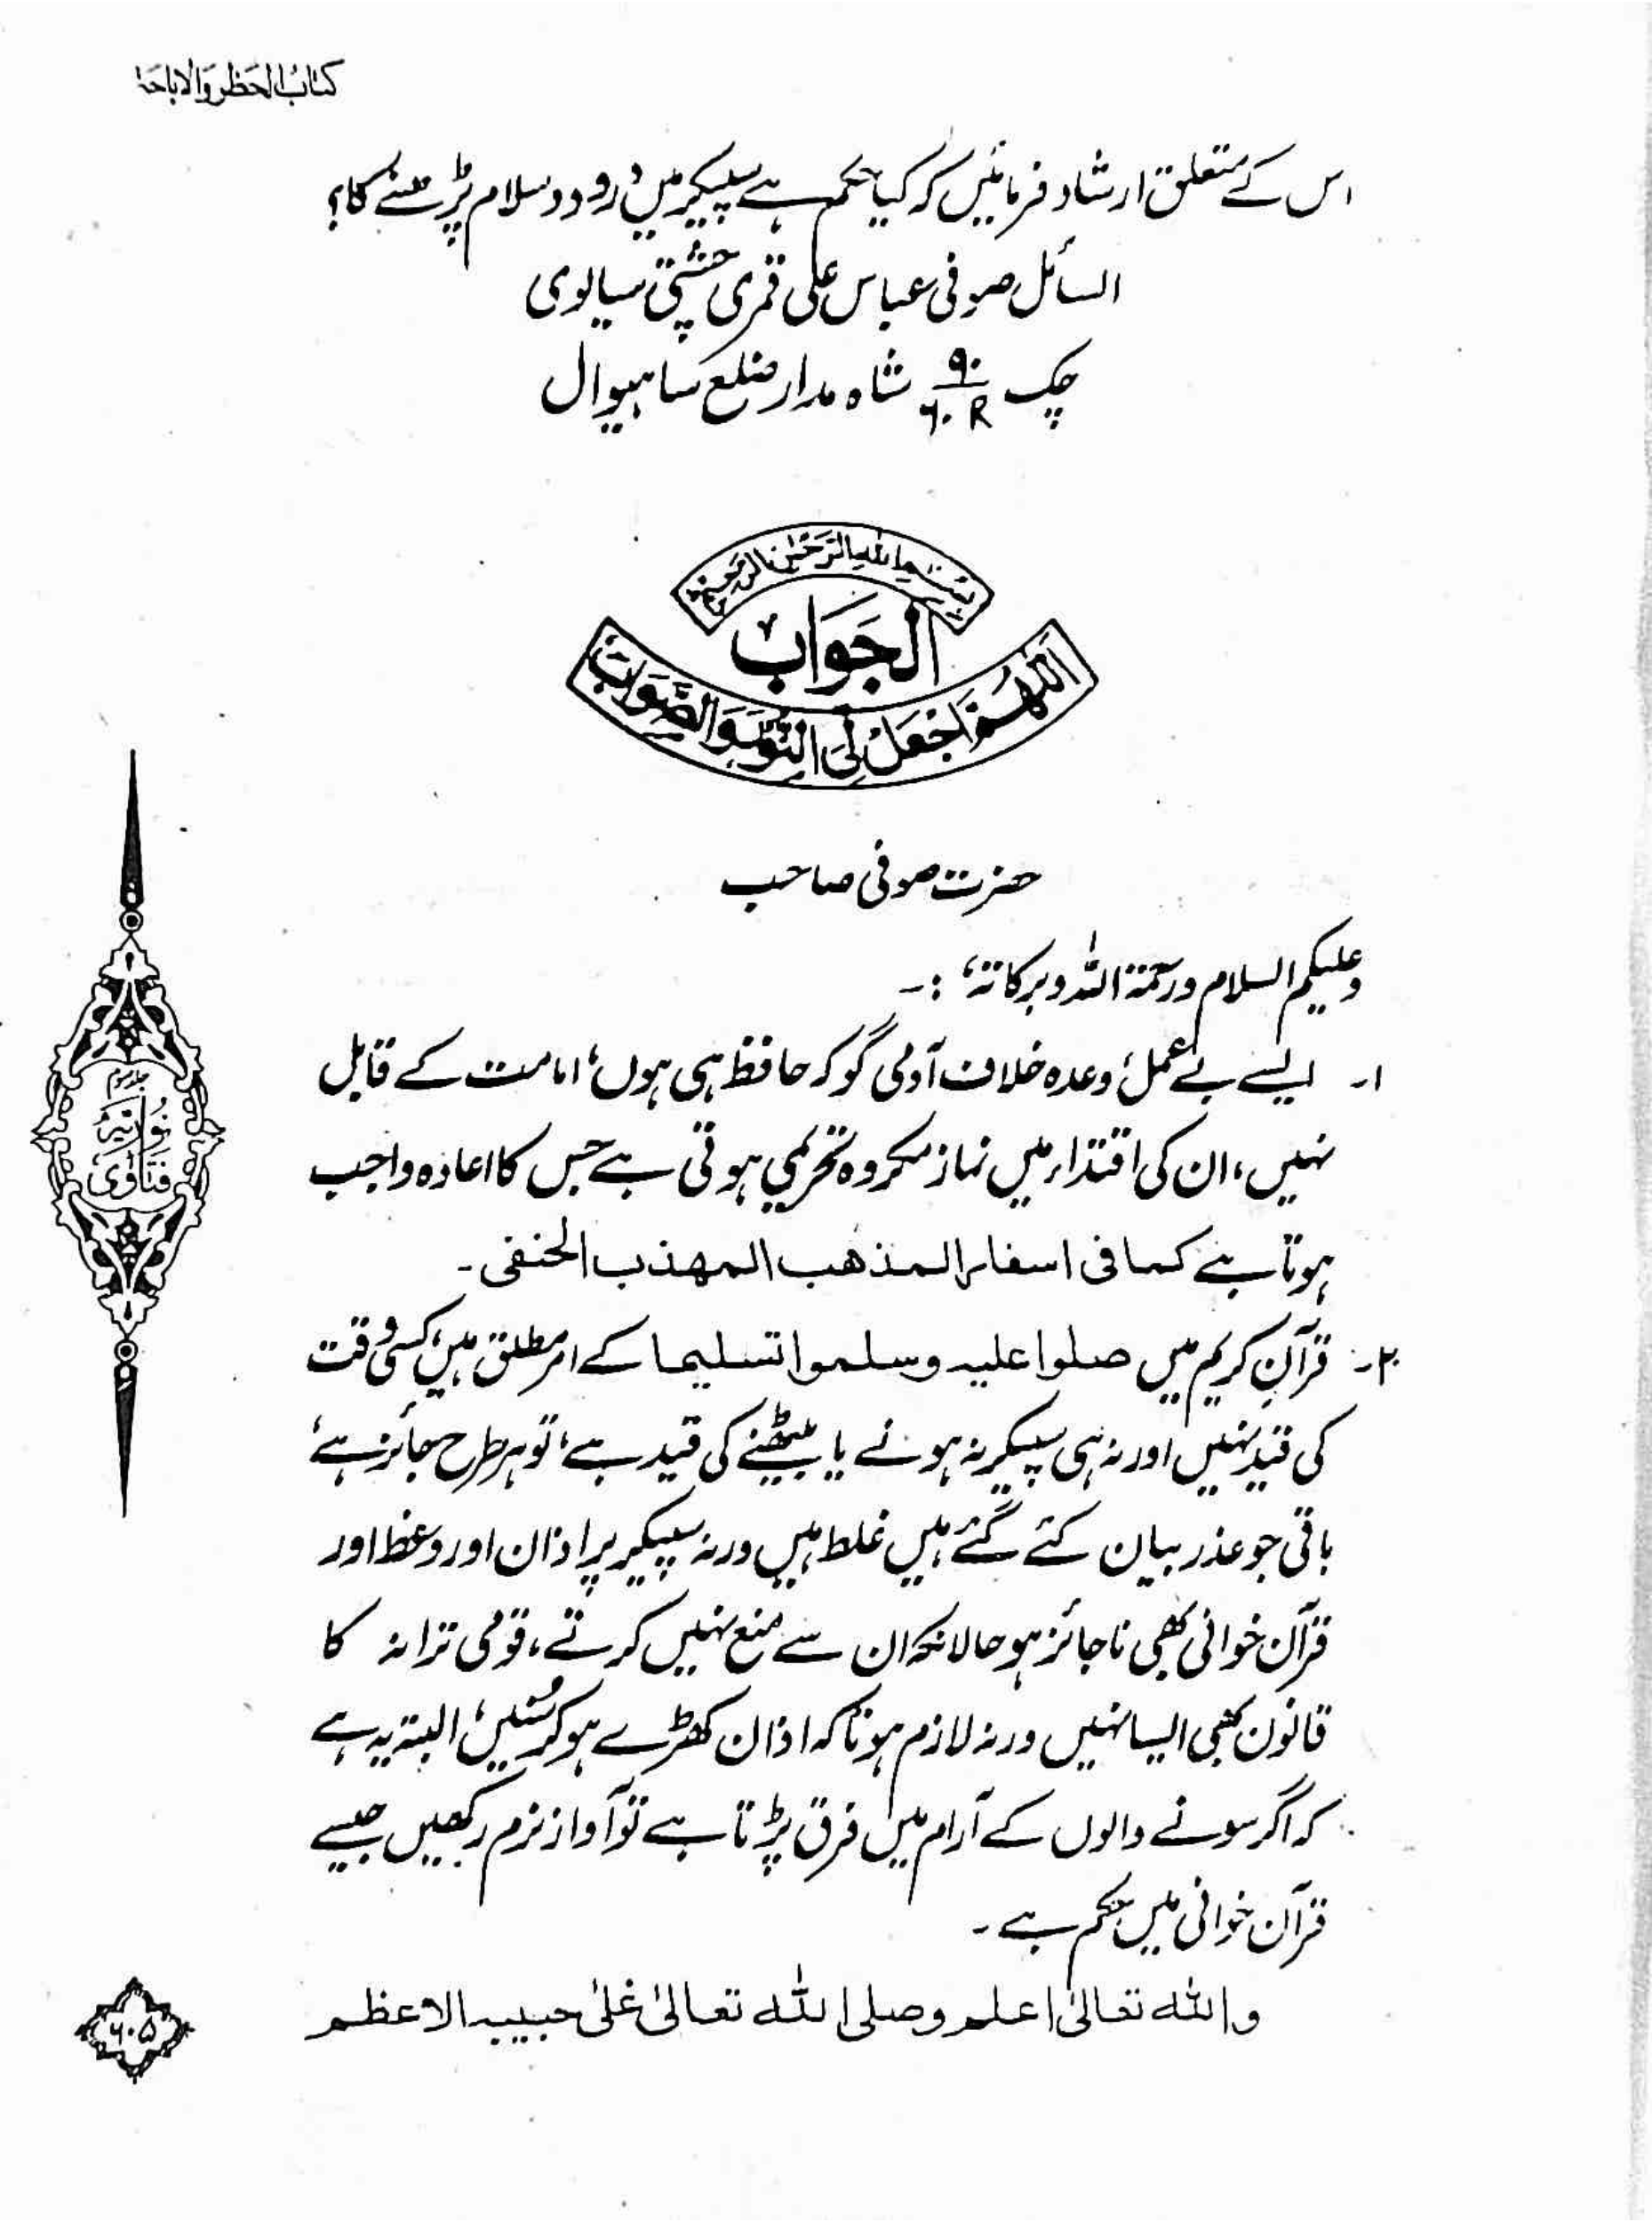 کتاب الحظر والاباحۃ
اس کے متعلق ارشاد فرمائیں کہ کیا حکم ہے سپیکر میں درود و سلام پڑھنے کا؟
السائل صوفی عباس علی قمری چشتی سیالوی
چک ۹۰/۶۰R شاہ مدار ضلع ساہیوال
بسم اللہ الرحمٰن الرحیم
الجَوَاب
اللہم اجعل لی النور والصواب
حضرت صوفی صاحب
وعلیکم السلام ورحمۃ اللہ وبرکاتہ، :۔
۱۔ ایسے بے عمل، وعدہ خلاف آدمی گو کہ حافظ ہی ہوں، امامت کے قابل
نہیں، ان کی اقتداء میں نماز مکروہ تحریمی ہوتی ہے جس کا اعادہ واجب
ہوتا ہے کما فی اسفار المذھب المھذب الحنفی۔
۲۔ قرآن کریم میں صلوا علیہ وسلموا تسلیما کے امر مطلق ہیں، کسی وقت
کی قید نہیں اور نہ ہی سپیکر نہ ہونے یا بیٹھنے کی قید ہے، تو ہر طرح جائز ہے،
باقی جو عذر بیان کئے گئے ہیں غلط ہیں ورنہ سپیکر پر اذان اور وعظ اور
قرآن خوانی بھی ناجائز ہو حالانکہ ان سے منع نہیں کرتے، قومی ترانہ کا
قانون بھی ایسا نہیں ورنہ لازم ہوتا کہ اذان کھڑے ہو کر سنیں، البتہ یہ ہے
کہ اگر سونے والوں کے آرام میں فرق پڑتا ہے تو آواز نرم رکھیں جیسے
قرآن خوانی میں حکم ہے۔
واللہ تعالیٰ اعلم وصلی اللہ تعالیٰ علیٰ حبیبہ الاعظم
جلد سوم
نوریہ
فتاویٰ
۶۰۵